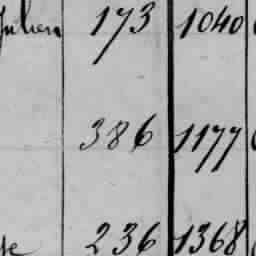 Julien 173 1040
386 1177
236 1368